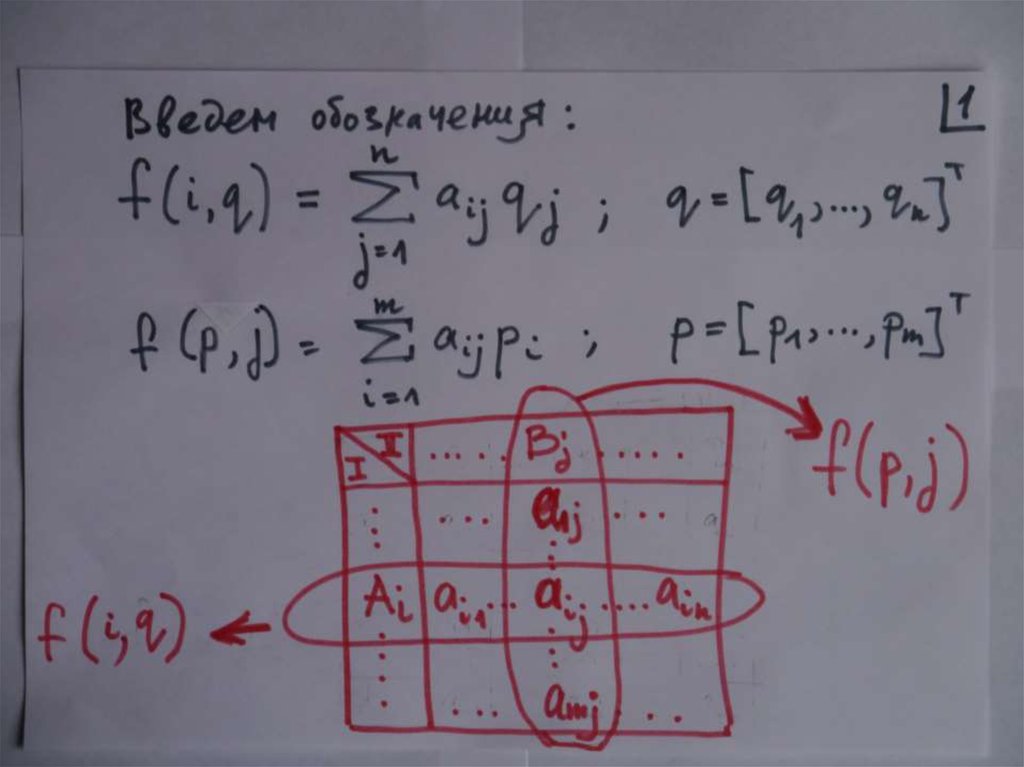 Введем обозначения:
1
f(i,q) = ∑_{j=1}^{n} a_{ij} q_j ; q = [q_1,..., q_n]^T
f(p,j) = ∑_{i=1}^{m} a_{ij} p_i ; p = [p_1,..., p_m]^T
I II ..... B_j ......
f(p,j)
⋮ ... a_{1j} ...
⋮
f(i,q) ← A_i a_{i1}... a_{ij} .... a_{in}
⋮ ⋮
... a_{mj} ..